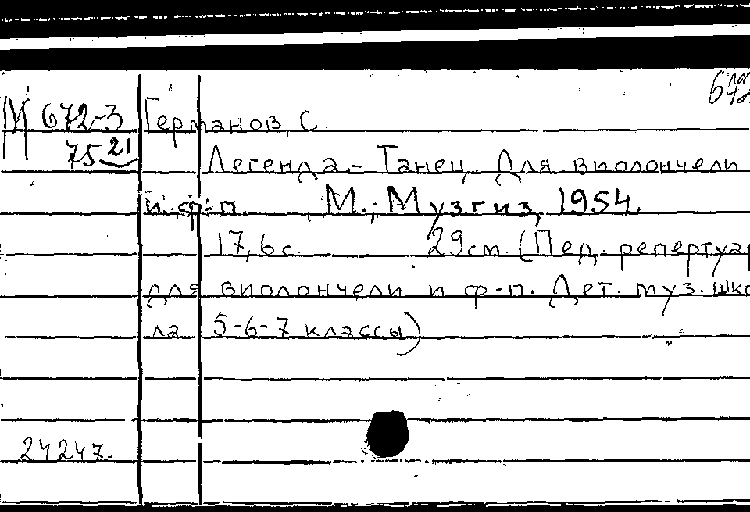 М 672-3 Германов, С.
75 21 Легенда.- Танец. Для виолончели
и ф-п. М., Музгиз, 1954.
17,6 с. 29 см. (Пед. репертуар
для виолончели и ф-п. Дет. муз. шко
ла 5-6-7 классы)
24247.